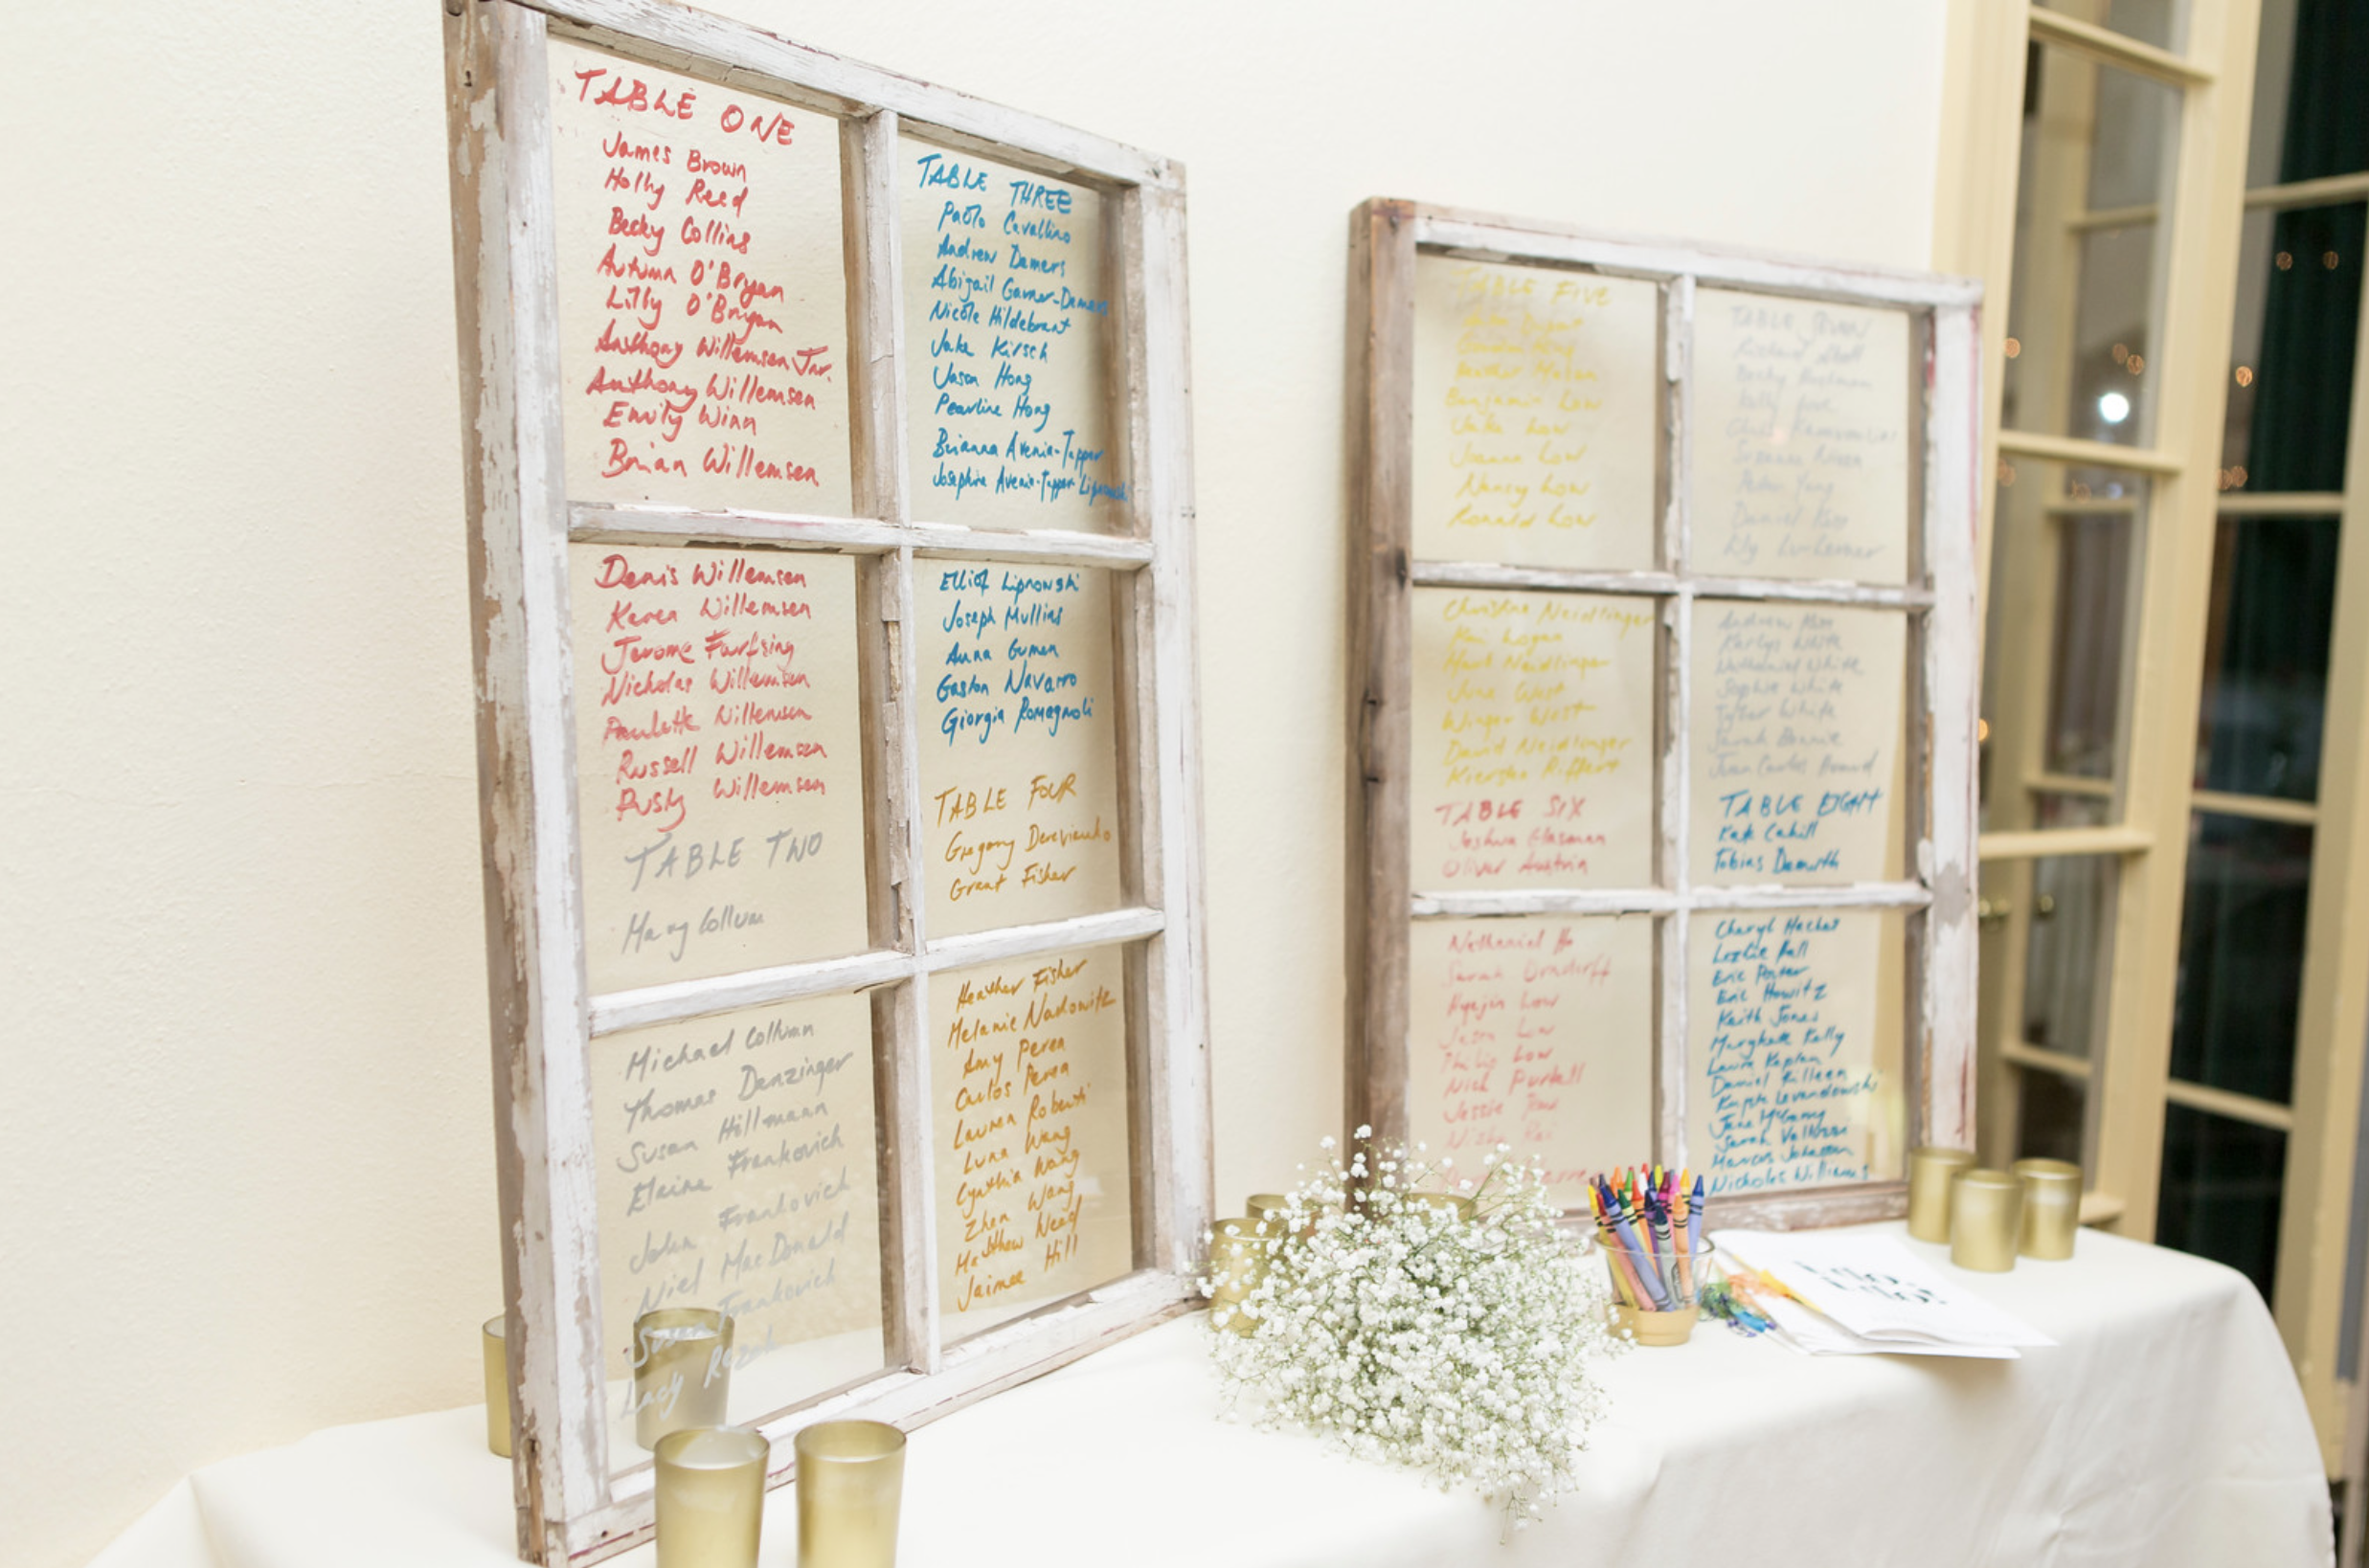 TABLE ONE
James Brown
Holly Reed
Becky Collins
Autumn O'Bryan
Lilly O'Bryan
Anthony Willemsen Jnr.
Anthony Willemsen
Emily Winn
Brian Willemsen
Denis Willemsen
Karen Willemsen
Jerome Farfsing
Nicholas Willemsen
Paulette Willemsen
Russell Willemsen
Rusty Willemsen
TABLE TWO
Mary Collum
Michael Collman
Thomas Danzinger
Susan Hillmann
Elaine Frankovich
John Frankovich
Niel MacDonald
Susan Frankovich
Lacy Rezek
TABLE THREE
Paolo Cavallino
Andrew Demers
Abigail Garner-Demers
Nicole Hildebrant
Jake Kirsch
Jason Hong
Pearline Hong
Brianna Avenia-Tapper
Josephine Avenia-Tapper Lipnowski
Elliot Lipnowski
Joseph Mullins
Anna Gumen
Gaston Navarro
Giorgia Romagnoli
TABLE FOUR
Gregory Derevianko
Grant Fisher
Heather Fisher
Melanie Naskowitz
Amy Perea
Carlos Perea
Lauren Roberti
Luna Wang
Cynthia Wang
Zhen Wang
Matthew Weed
Jaimee Hill
TABLE FIVE
Benjamin Low
Jake Low
Joanna Low
Nancy Low
Ronald Low
Christine Neidlinger
Kai Logan
Mark Neidlinger
June West
Winger West
David Neidlinger
Kiersten Riffert
TABLE SIX
Joshua Glasman
Oliver Austria
Nathanial Ho
Sarah Orndorff
Hyejin Low
Jason Low
Philip Low
Nick Purtell
Jessie
Nisha Rai
TABLE SEVEN
Richard
Becky
Suzanne
Peter Yang
Daniel Kiss
Lily
Andrew Kiss
Karlys White
Nathaniel White
Sophie White
Tyler White
Sarah
Juan Carlos
TABLE EIGHT
Kate Cahill
Tobias Demuth
Cheryl Hacker
Leslie Ball
Eric Porter
Eric Howitz
Keith Jones
Marghate Kelly
Laura Kaplan
Daniel Killeen
Levandowski
Jane McGarry
Sarah
Marcus Johnson
Nicholas Williams